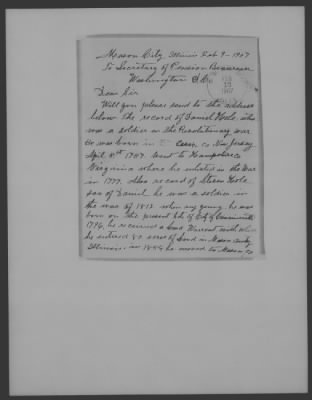 Mason City, Illinois Feb 9 - 1907
To Secretary of Pension Bureau
Washington D.C.
FEB
1907
Dear Sir
Will you please send to the address
below the record of Daniel who
was a soldier in the Revolutionary war.
He was born in Co New Jersey
April 4th 1757 went to Hampshire Co
Virginia where he enlisted in the War
in 1777. Also record of
son of Daniel he was a soldier in
the war of 1812 when very young. he was
born on the present site of City of
1796, he received a Land Warrant with which
he entered 80 acres of land in Mason County
Illinois, in 1854 he moved to Mason Co